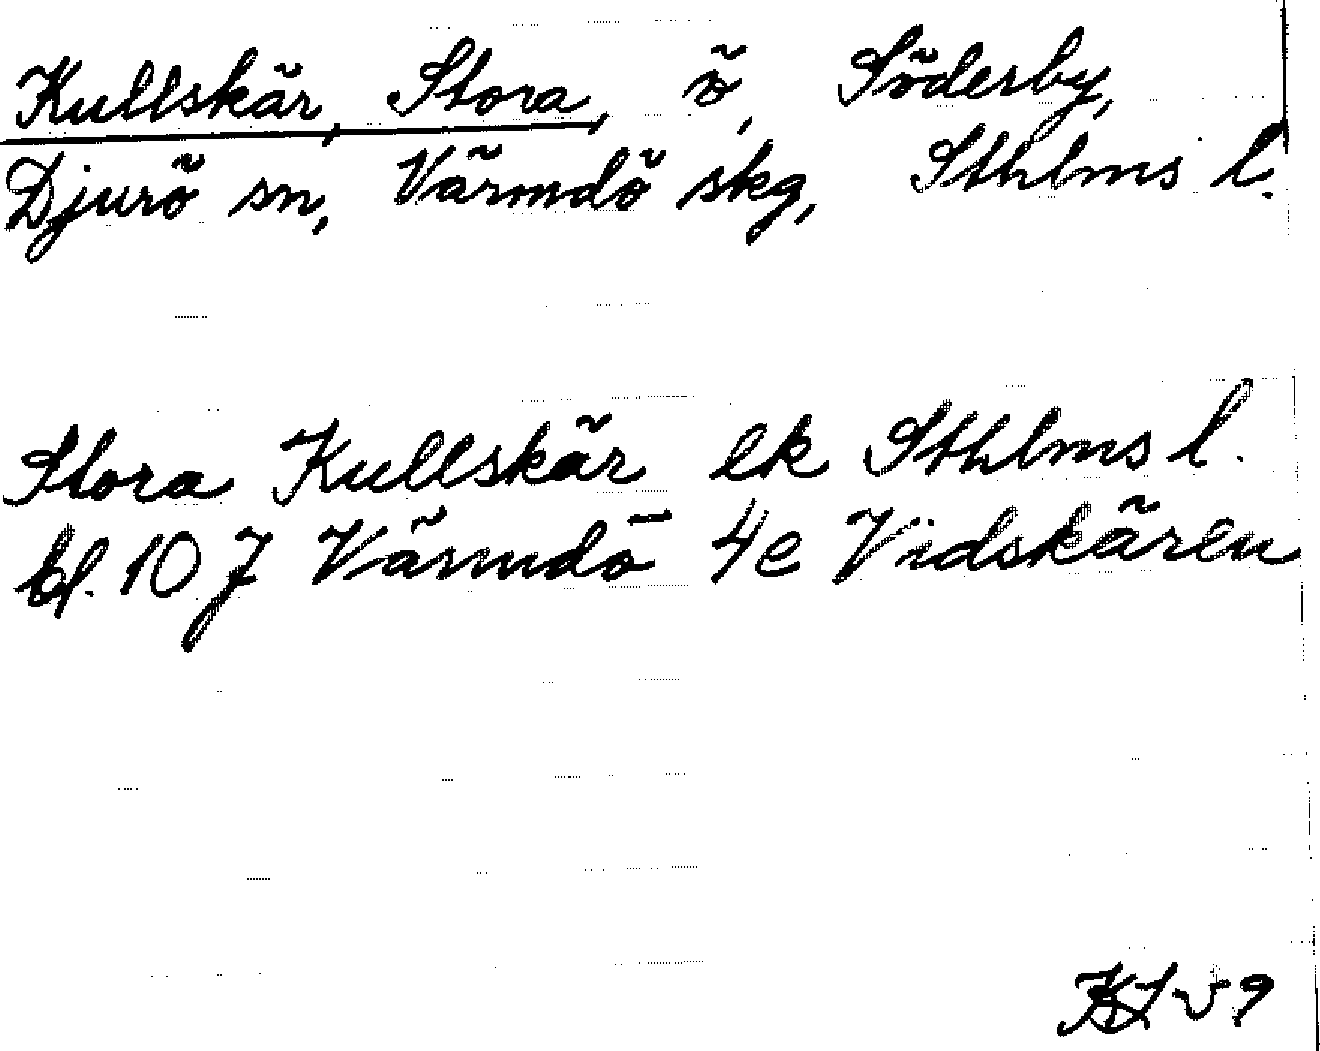 Kullskär, Stora, ö, Söderby,
Djurö sn, Värmdö skg, Sthlms l.
Stora Kullskär ek Sthlms l.
bl. 107 Värmdö 4e Vidskären